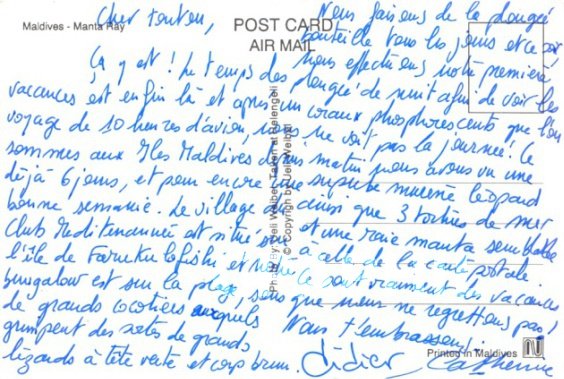 Maldives - Manta Ray
POST CARD
AIR MAIL
Cher tonton,
Ça y est ! Le temps des
vacances est enfin là et après un
voyage de 10 heures d'avion, nous
sommes aux Iles Maldives depuis
déjà 6 jours, et pour encore une
bonne semaine. Le village du
Club Mediterannée est situé sur
l'île de Farukulufushi et notre
bungalow est sur la plage, sous
de grands cocotiers auxquels
grimpent des sortes de grands
lézards à tête verte et corps brun.
Nous faisons de la plongée
bouteille tous les jours et ce soir
nous effectuons notre première
plongée de nuit afin de voir les
coraux phosphorescents que l'on
ne voit pas la journée ! Ce
matin nous avons vu une
superbe murène léopard
ainsi que 3 tortues de mer
et une raie manta semblable
à celle de la carte postale.
Ce sont vraiment des vacances
que nous ne regrettons pas !
Nous t'embrassons !
Didier Catherine
Photo by Ueli Weibel, Taken at Helengeli
© Copyright by Ueli Weibel
Printed in Maldives